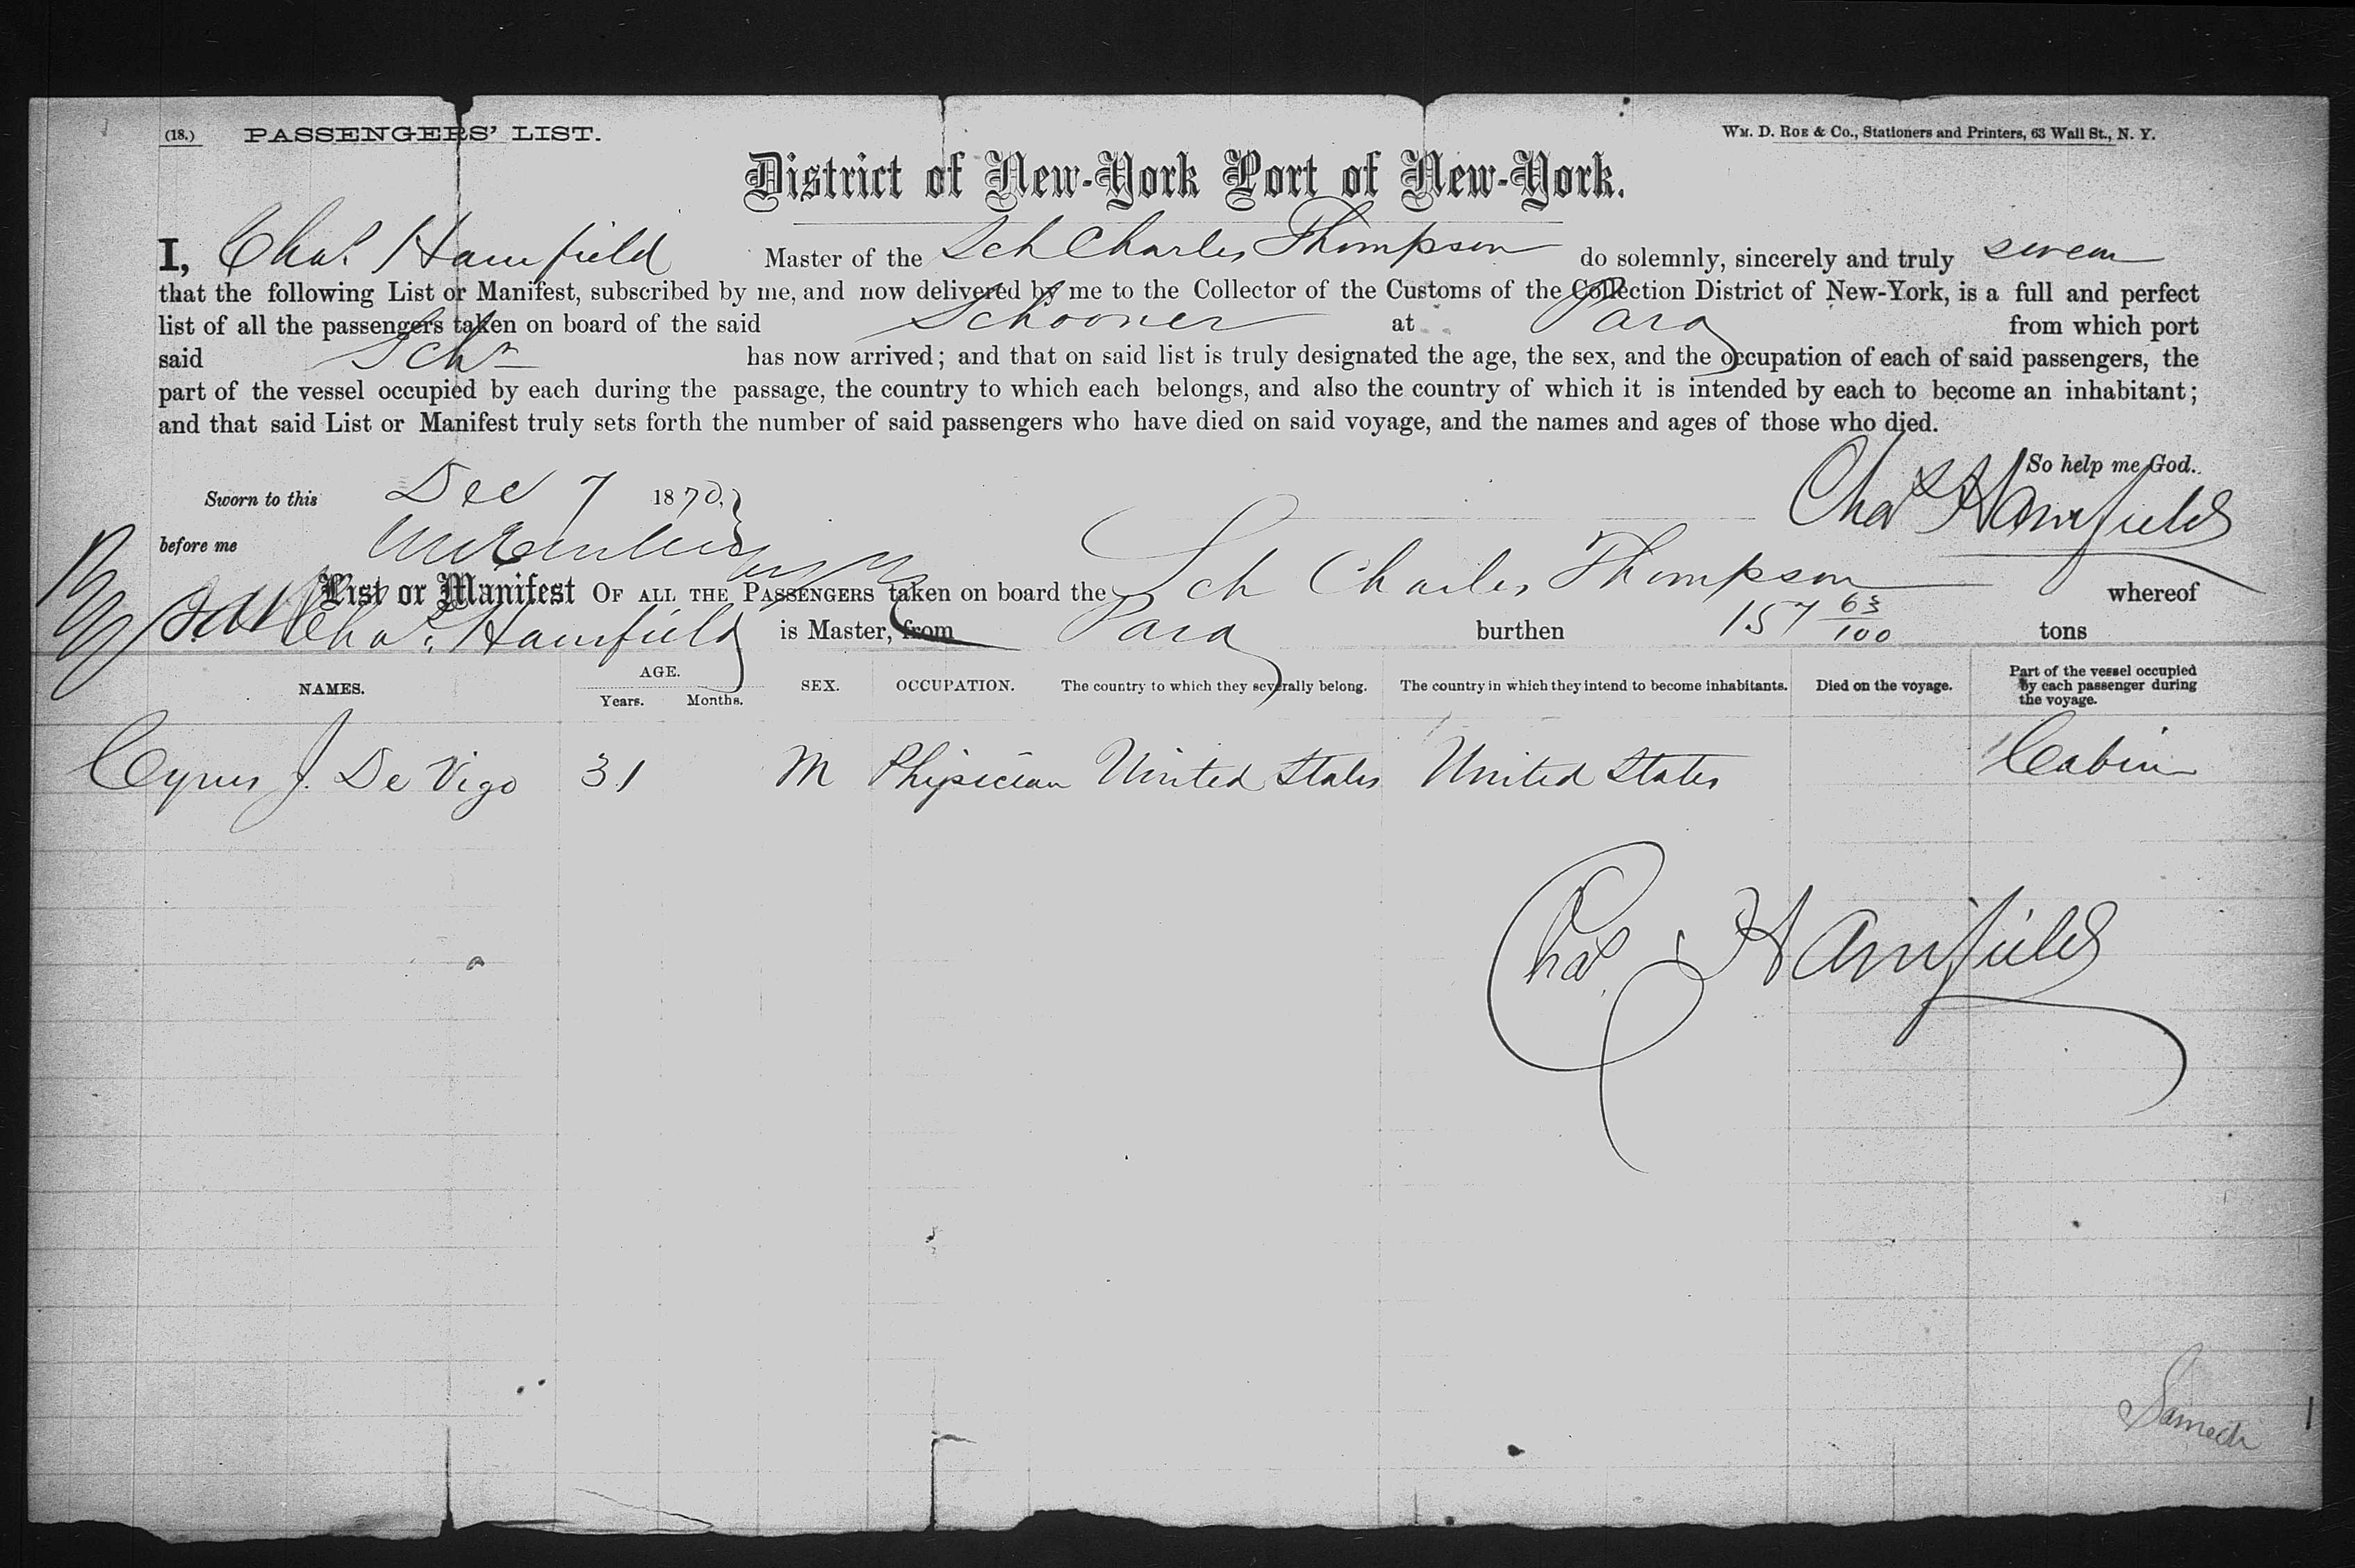 (18.) PASSENGERS' LIST.
WM. D. ROE & CO., Stationers and Printers, 63 Wall St., N. Y.
District of New-York Port of New-York.
I, Chas. Hamfield Master of the Sch Charles Thompson do solemnly, sincerely and truly swear
that the following List or Manifest, subscribed by me, and now delivered by me to the Collector of the Customs of the Collection District of New-York, is a full and perfect
list of all the passengers taken on board of the said Schooner at Para from which port
said Schr has now arrived; and that on said list is truly designated the age, the sex, and the occupation of each of said passengers, the
part of the vessel occupied by each during the passage, the country to which each belongs, and also the country of which it is intended by each to become an inhabitant;
and that said List or Manifest truly sets forth the number of said passengers who have died on said voyage, and the names and ages of those who died.
So help me God.
Sworn to this Dec 7 1870.
Chas Hamfield
before me
List or Manifest OF ALL THE PASSENGERS taken on board the Sch Charles Thompson whereof
Chas. Hamfield is Master, from Para burthen 157 63/100 tons
NAMES. AGE. Years. Months. SEX. OCCUPATION. The country to which they severally belong. The country in which they intend to become inhabitants. Died on the voyage. Part of the vessel occupied by each passenger during the voyage.
Cyrus J. De Vigo 31 M Physician United States United States Cabin
Chas. Hamfield